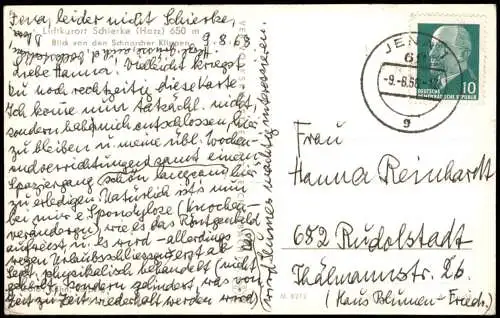 Jena, leider nicht Schierke,
Luftkurort Schierke (Harz) 650 m
Blick von den Schnarcher Klippen
9.8.68
Liebe Hanna! Vielleicht kriegst
du noch rechtzeitig diese Karte.
Ich komme nun tatsächl. nicht,
sondern hab mich entschlossen hier
zu bleiben u. meine übl. Wochen-
endverrichtungen samt einem
Spaziergang schön langsam hier
zu erledigen. Natürlich ist's nun
bei mir e Spondylose (Knochen-
veränderg.) wie es das Röntgenbild
aufweist u. es wird - allerdings
wegen Urlaubsschliessg erst ab
Sept. physikalisch behandelt (nicht
geheilt, sondern gelindert, was von
Zeit zu Zeit wiederholt werden wird)
mächtig interessieren.
JENA
-9.-8.68
9
10
DEUTSCHE
DEMOKRATISCHE REPUBLIK
Frau
Hanna Reinhardt
682 Rudolstadt
Thälmannstr. 26
(Haus Blumen-Friedr.)